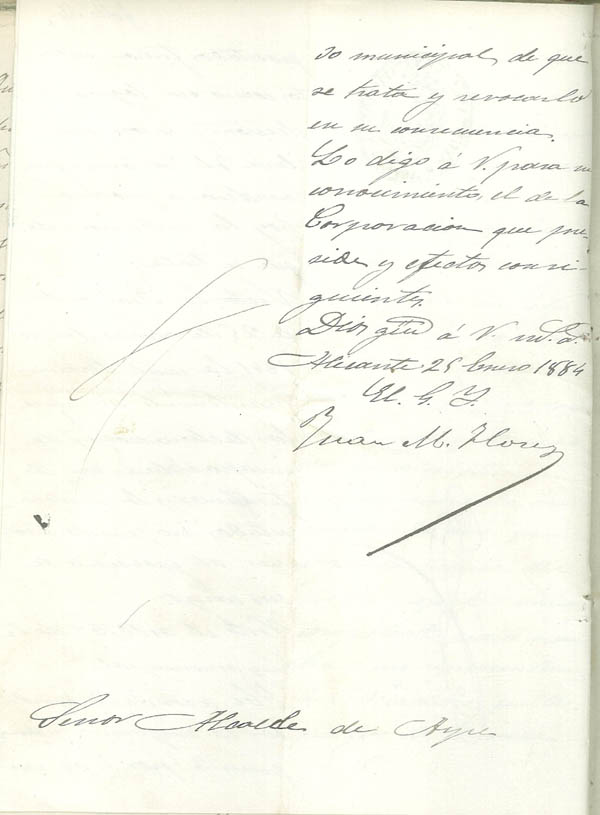 do municipal, de que
se trata y revocarlo
en su consecuencia.
Lo digo á V. para su
conocimiento, el de la
Corporacion que pre-
side y efectos consi-
guientes.
Dios gue á V. m.s a.s
Alicante 25 Enero 1884
El G. Y.
Juan M. Florez
Señor Alcalde de Aspe